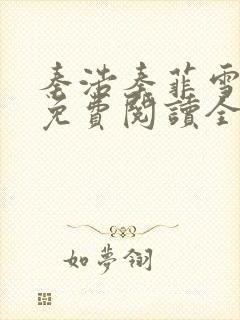 秦浩秦菲雪
免費閱讀全
如夢翎